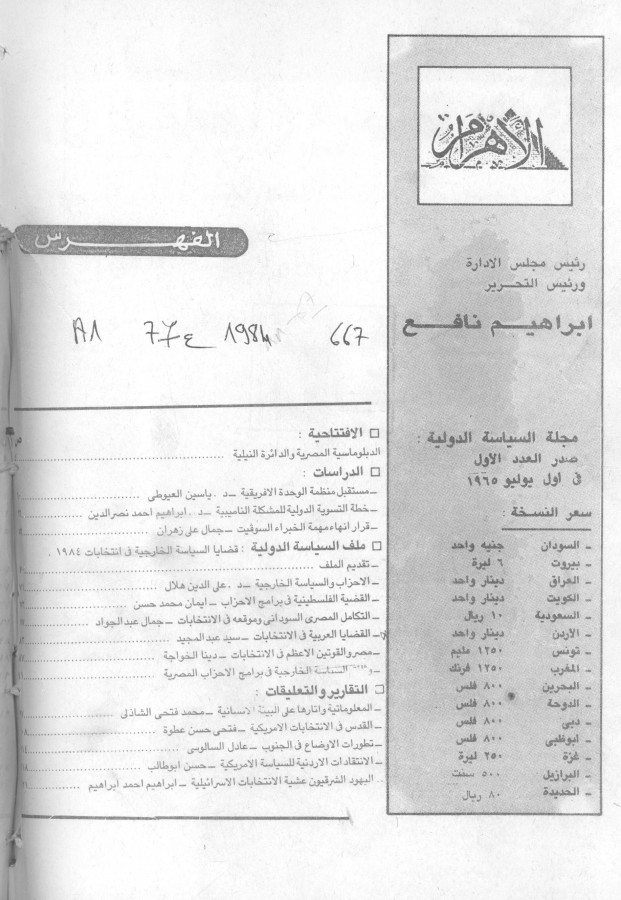 الأهرام
رئيس مجلس الادارة
ورئيس التحرير
ابراهيم نافع
مجلة السياسة الدولية :
صدر العدد الأول
فى اول يوليو ١٩٦٥
سعر النسخة :
ـ السودان جنيه واحد
ـ بيروت ٦ ليرة
ـ العراق دينار واحد
ـ الكويت دينار واحد
ـ السعودية ١٠ ريال
ـ الأردن دينار واحد
ـ تونس ١٢٥٠ مليم
ـ المغرب ١٢٥٠ فرنك
ـ البحرين ٨٠٠ فلس
ـ الدوحة ٨٠٠ فلس
ـ دبى ٨٠٠ فلس
ـ ابوظبى ٨٠٠ فلس
ـ غزة ٢٥٠ ليرة
ـ البرازيل ٥٠٠ سنت
ـ الحديدة ٨٠ ريال
الفهرس
A1 77ع 1984 667
□ الافتتاحية : ص
الدبلوماسية المصرية والدائرة النيلية
□ الدراسات :
ـ مستقبل منظمة الوحدة الافريقية ـ د. ياسين العيوطى
ـ خطة التسوية الدولية للمشكلة الناميبية ـ د. ابراهيم احمد نصر الدين
ـ قرار انهاء مهمة الخبراء السوفيت ـ جمال على زهران
□ ملف السياسة الدولية : قضايا السياسة الخارجية فى انتخابات ١٩٨٤ .
ـ تقديم الملف
ـ الاحزاب والسياسة الخارجية ـ د. على الدين هلال
ـ القضية الفلسطينية فى برامج الاحزاب ـ ايمان محمد حسن
ـ التكامل المصرى السودانى وموقعه فى الانتخابات ـ جمال عبد الجواد
ـ القضايا العربية فى الانتخابات ـ سيد عبد المجيد
ـ مصر والقوتين الاعظم فى الانتخابات ـ دينا الخواجة
السياسة الخارجية فى برامج الاحزاب المصرية
□ التقارير والتعليقات :
ـ المعلوماتية واثارها على البيئة الانسانية ـ محمد فتحى الشاذلى
ـ القدس فى الانتخابات الامريكية ـ فتحى حسن عطوة
ـ تطورات الاوضاع فى الجنوب ـ عادل السالوسى
ـ الانتقادات الاردنية للسياسة الامريكية ـ حسن ابوطالب
اليهود الشرقيون عشية الانتخابات الاسرائيلية ـ ابراهيم احمد ابراهيم